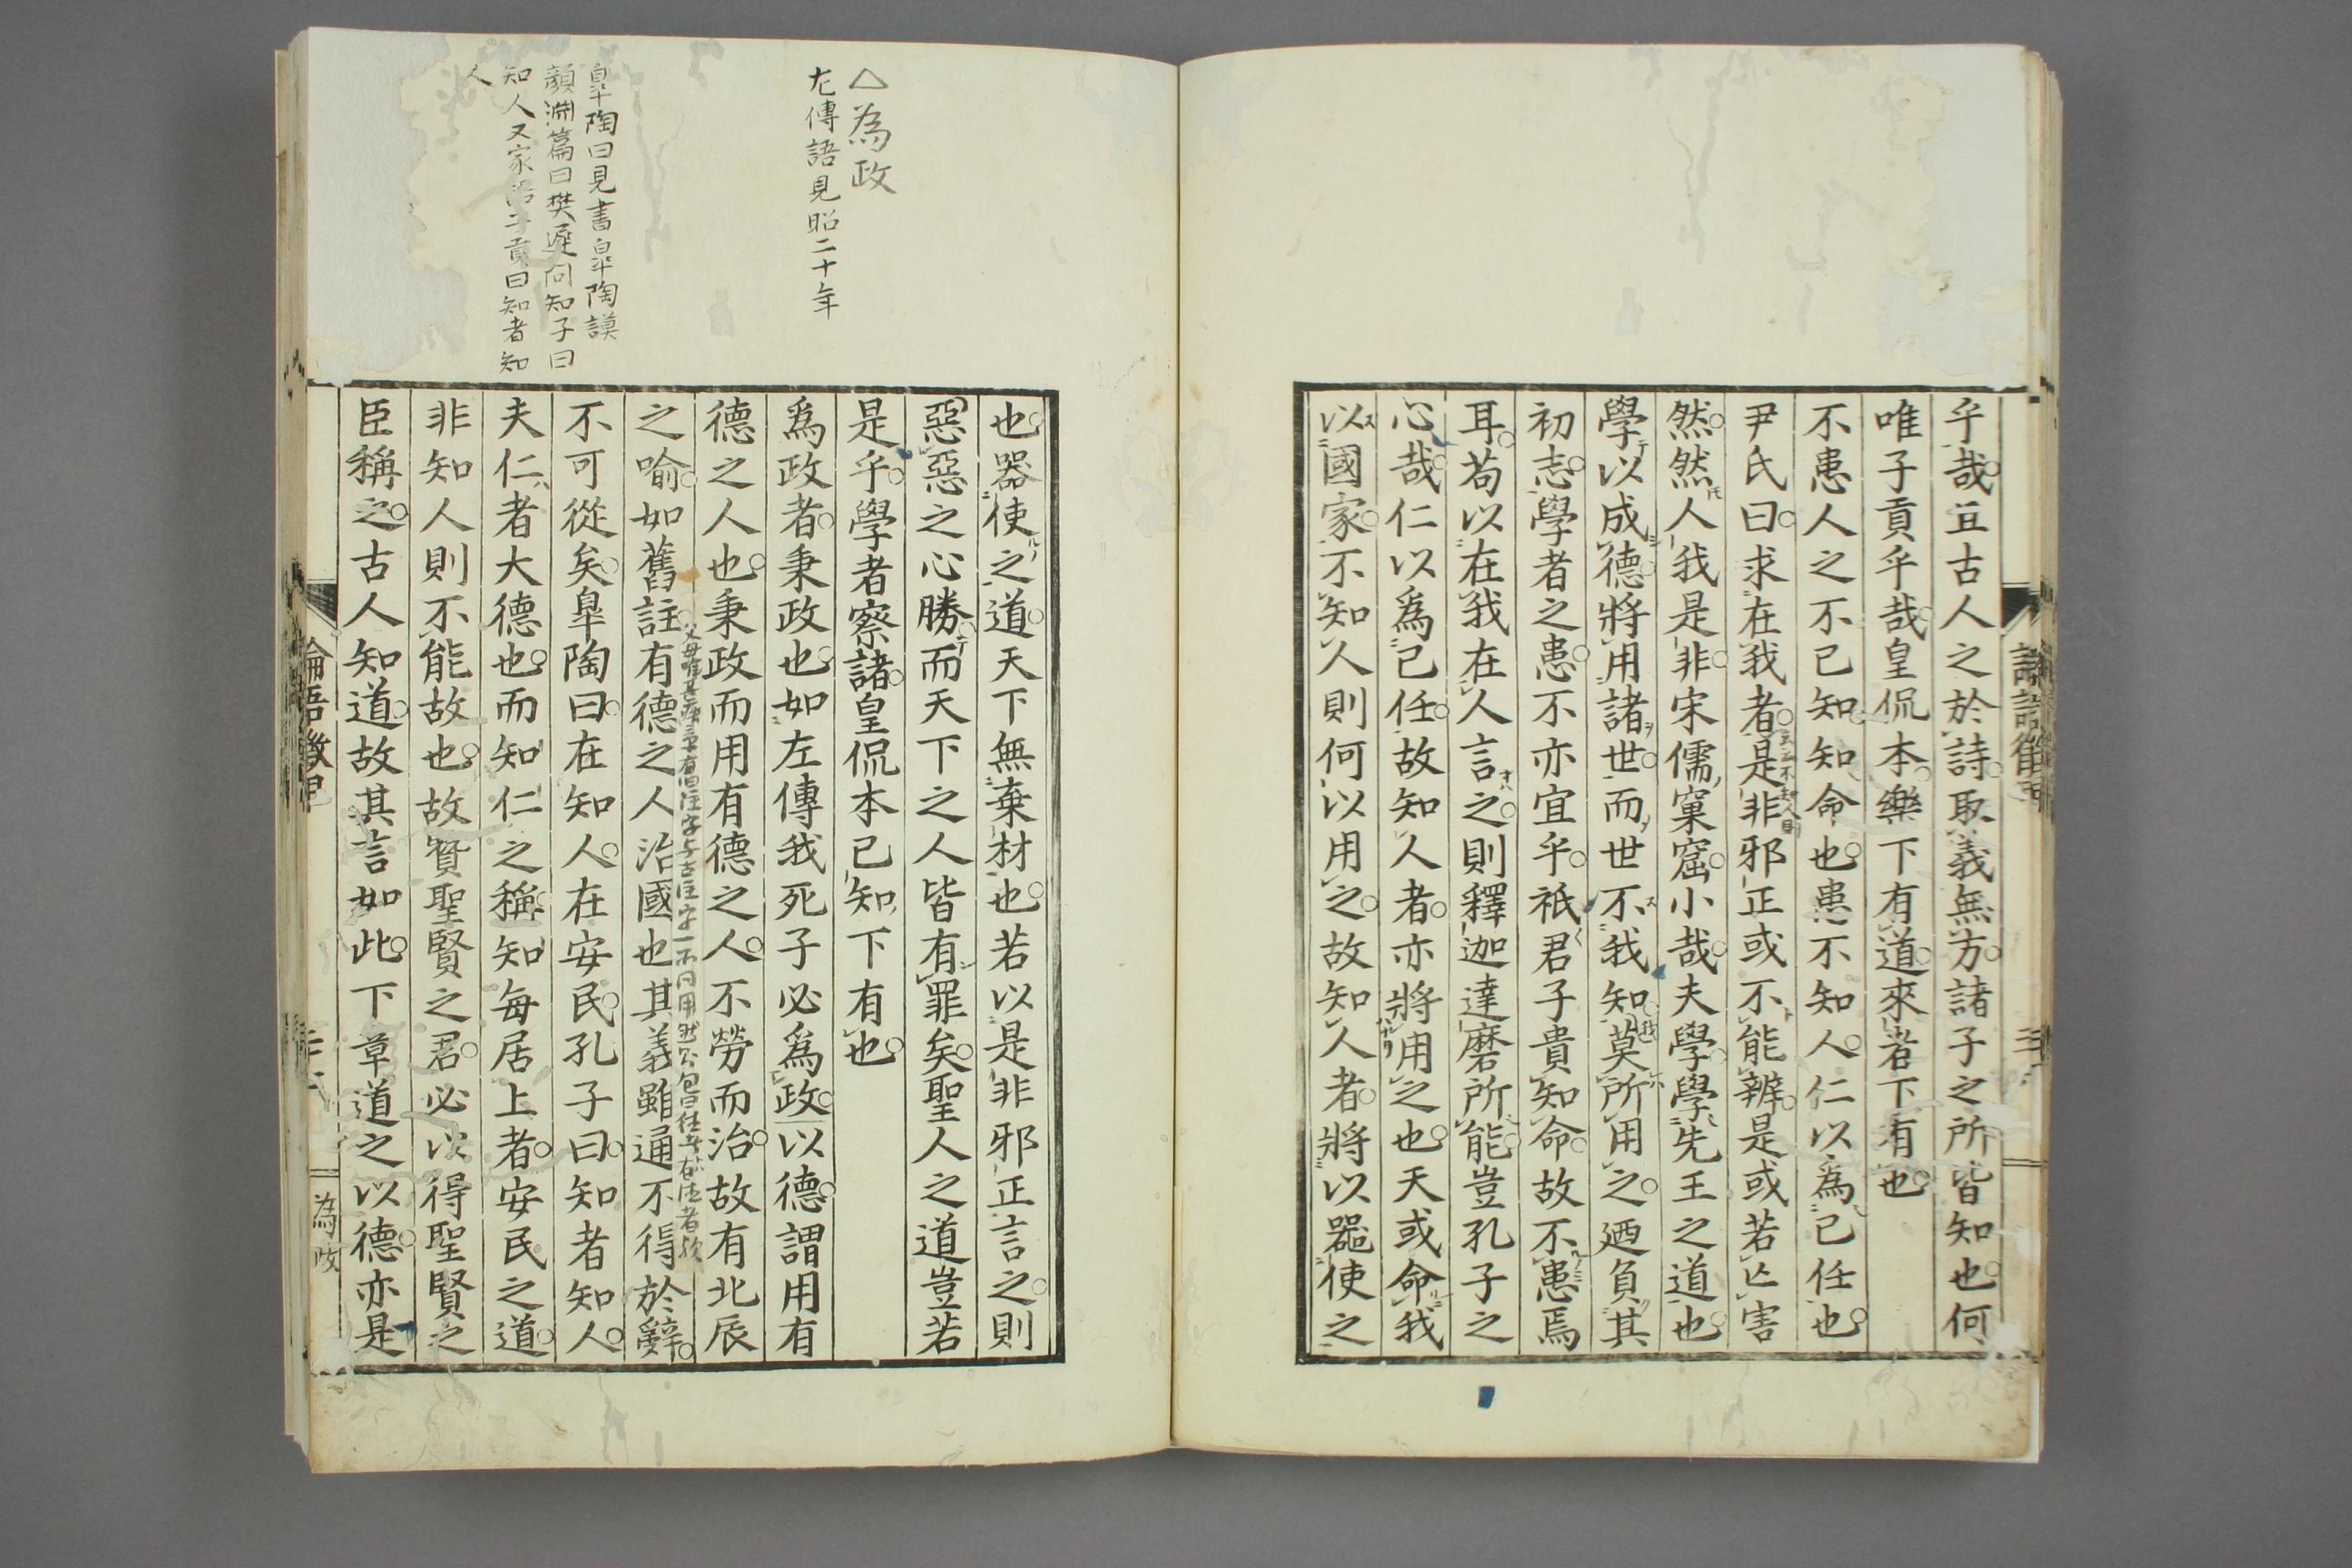 乎哉亘古人之於詩取義無方諸子之所皆知也何
唯子貢乎哉皇侃本樂下有道來者下有也
不患人之不己知知命也患不知人仁以爲己任也
尹氏曰求在我者是非邪正或不能辨是或若亾害
然然人我是非宋儒窠窟小哉夫學學先王之道也
學以成德將用諸世而世不我知莫所用之廼負其
初志學者之患不亦宜乎祇君子貴知命故不患焉
耳苟以在我在人言之則釋迦達磨所能豈孔子之
心哉仁以爲己任故知人者亦將用之也天或命我
以國家不知人則何以用之故知人者將以器使之
也器使之道天下無棄材也若以是非邪正言之則
惡惡之心勝而天下之人皆有罪矣聖人之道豈若
是乎學者察諸皇侃本已知下有也
爲政者秉政也如左傳我死子必爲政以德謂用有
德之人也秉政而用有德之人不勞而治故有北辰
之喻如舊註有德之人治國也其義雖通不得於辭
不可從矣皐陶曰在知人在安民孔子曰知者知人
夫仁者大德也而知仁之稱知每居上者安民之道
非知人則不能故也故賢聖賢之君必以得聖賢之
臣稱之古人知道故其言如此下章道之以德亦是
△為政
左傳語見昭二十年
皐陶曰見書皐陶謨
顔淵篇曰樊遲问知子曰
知人又家語子貢曰知者知
人
論語徵甲
為政